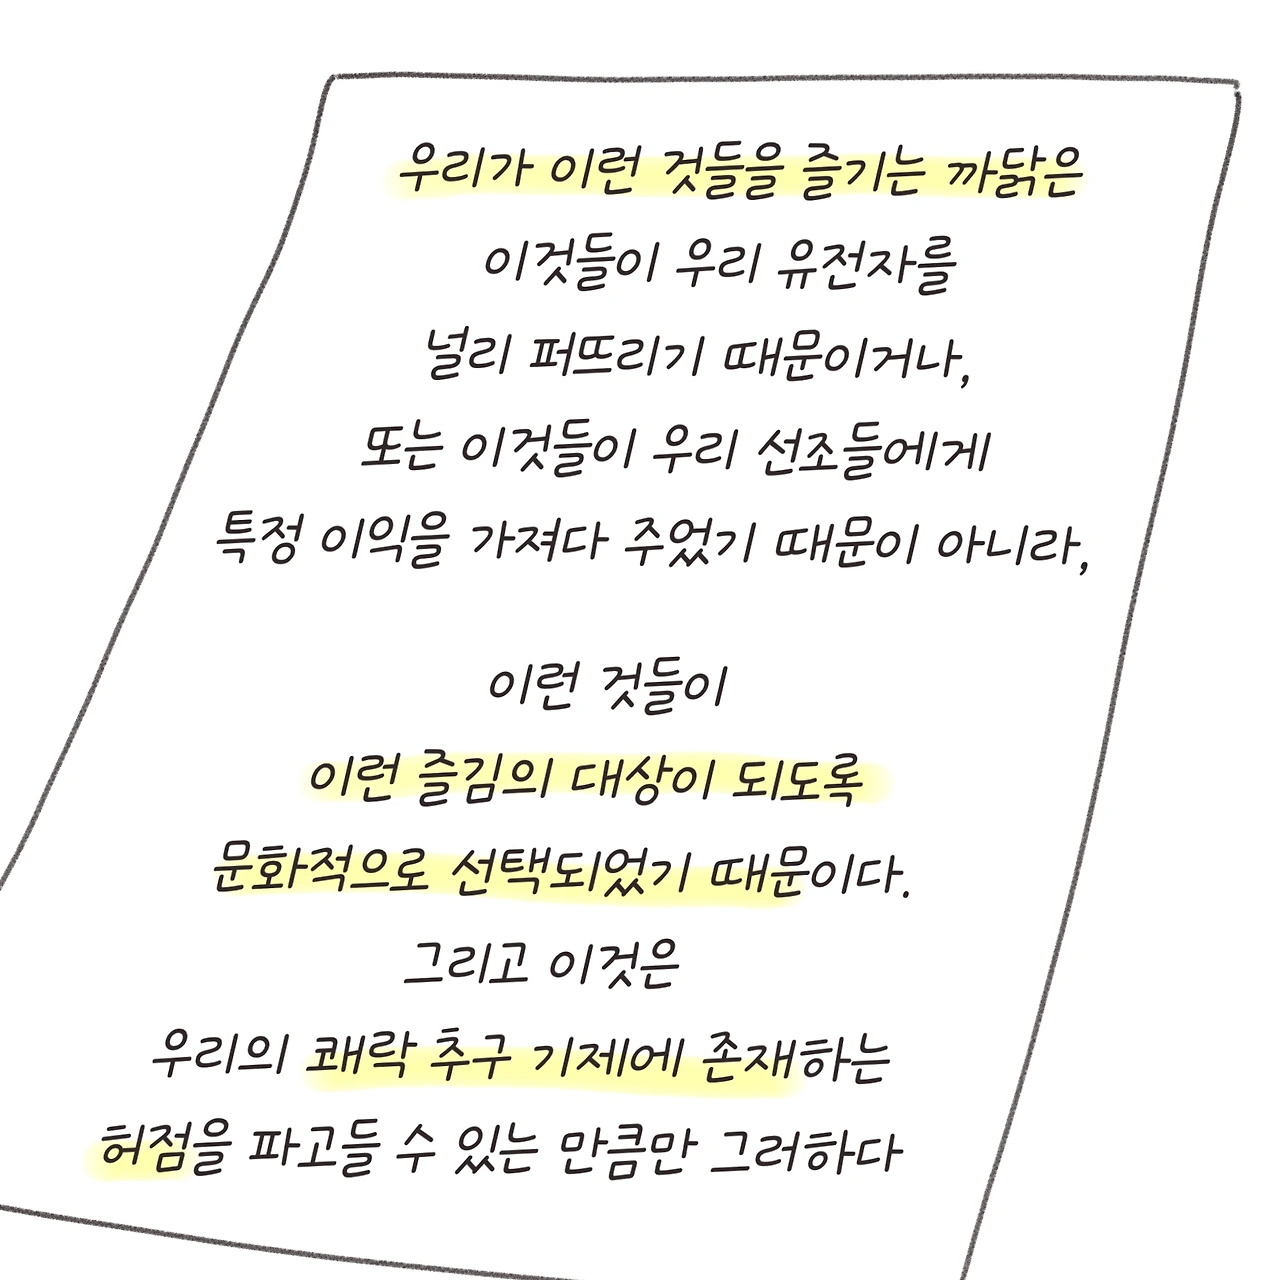 우리가 이런 것들을 즐기는 까닭은
이것들이 우리 유전자를
널리 퍼뜨리기 때문이거나,
또는 이것들이 우리 선조들에게
특정 이익을 가져다 주었기 때문이 아니라,
이런 것들이
이런 즐김의 대상이 되도록
문화적으로 선택되었기 때문이다.
그리고 이것은
우리의 쾌락 추구 기제에 존재하는
허점을 파고들 수 있는 만큼만 그러하다